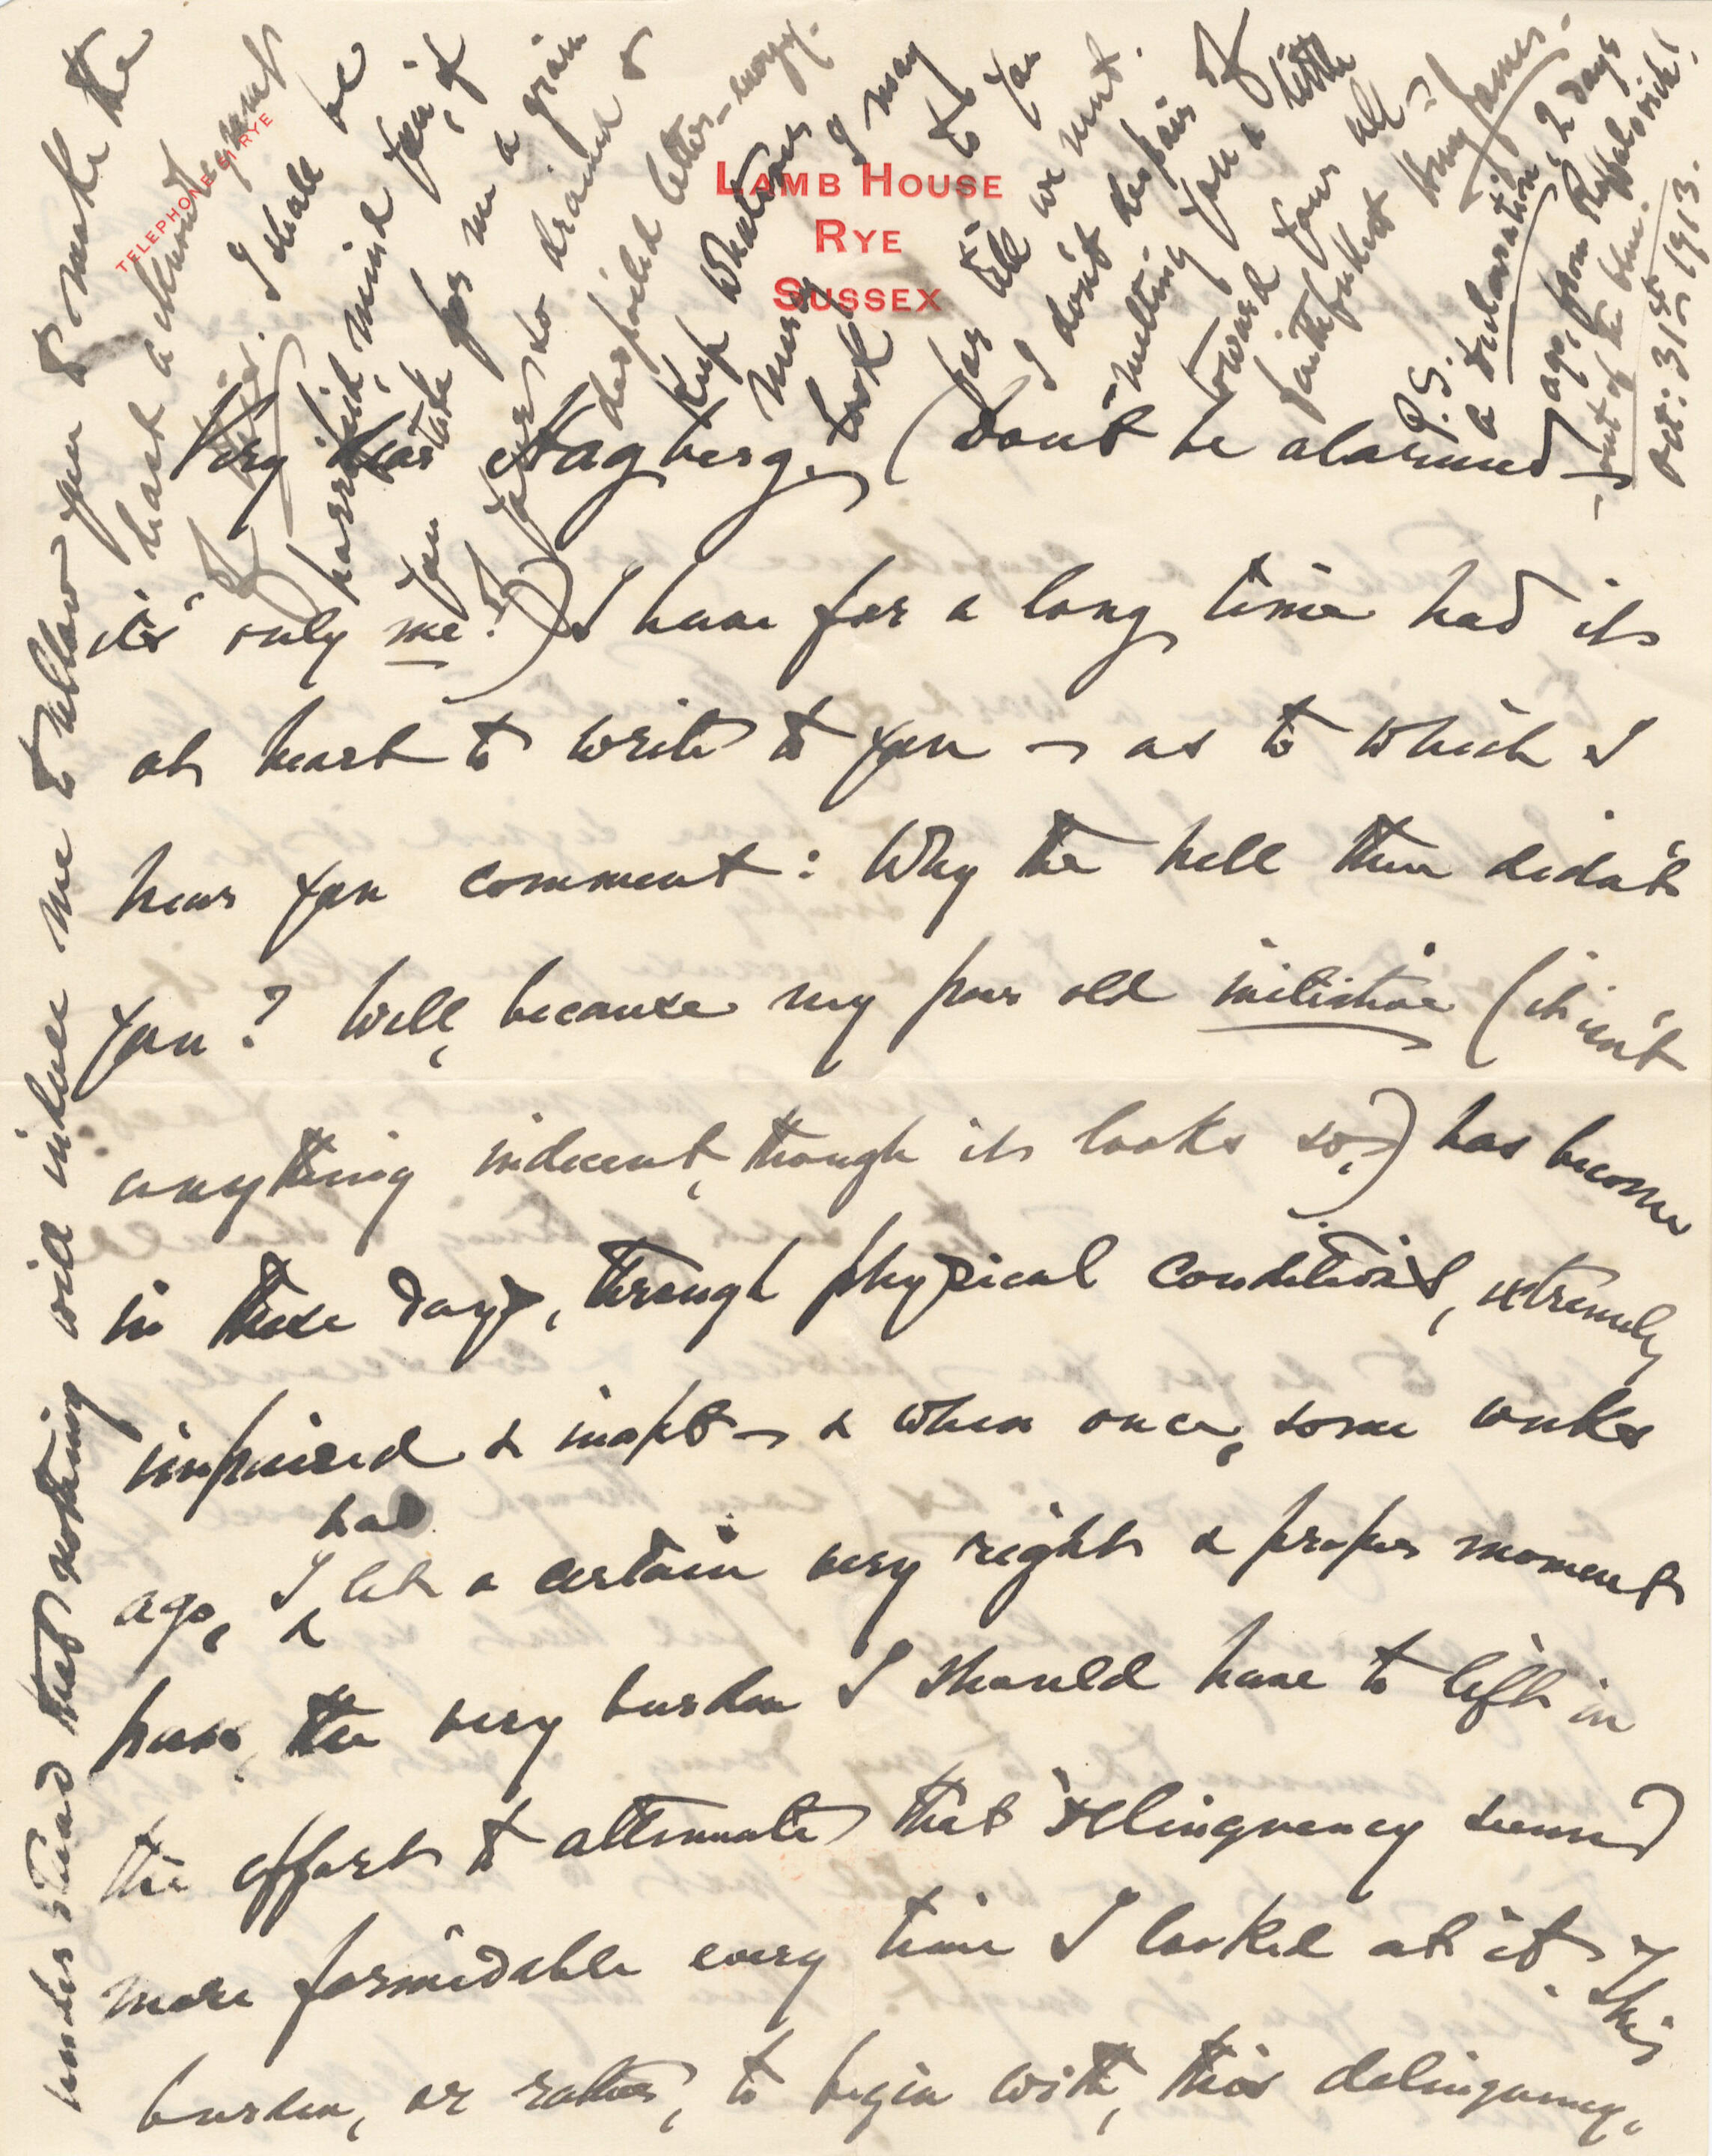 TELEPHONE 51 RYE
LAMB HOUSE
RYE
SUSSEX
Oct: 31st 1913.
Very dear Hagberg, (Don't be alarmed —
it's only me!) I have for a long time had it
at heart to write to you — as to which I
hear you comment: Why the hell then didn't
you? Well, because my poor old initiative (it isn't
anything indecent, though it looks so,) has become
in these days, through physical conditions, extremely
impaired & inapt — & when once, some weeks
ago, I had let a certain very right & proper moment
pass, the very burden I should have to lift in
the effort to attenuate that delinquency seemed
more formidable every time I looked at it. This
burden, or rather, to begin with, this delinquency,
understand that nothing will induce me to allow you to make the
least acknowledgment
I shall be
horrified, mind you, if
you take for me a grain
of your so drained &
despoiled letter-energy.
Keep whatever
mercy I may
look to you
for till we meet.
I don't despair of
melting you a little
toward your
faithfullest
Henry James.
P.S.
a declaration, 2 days
ago, from
out of the blue.